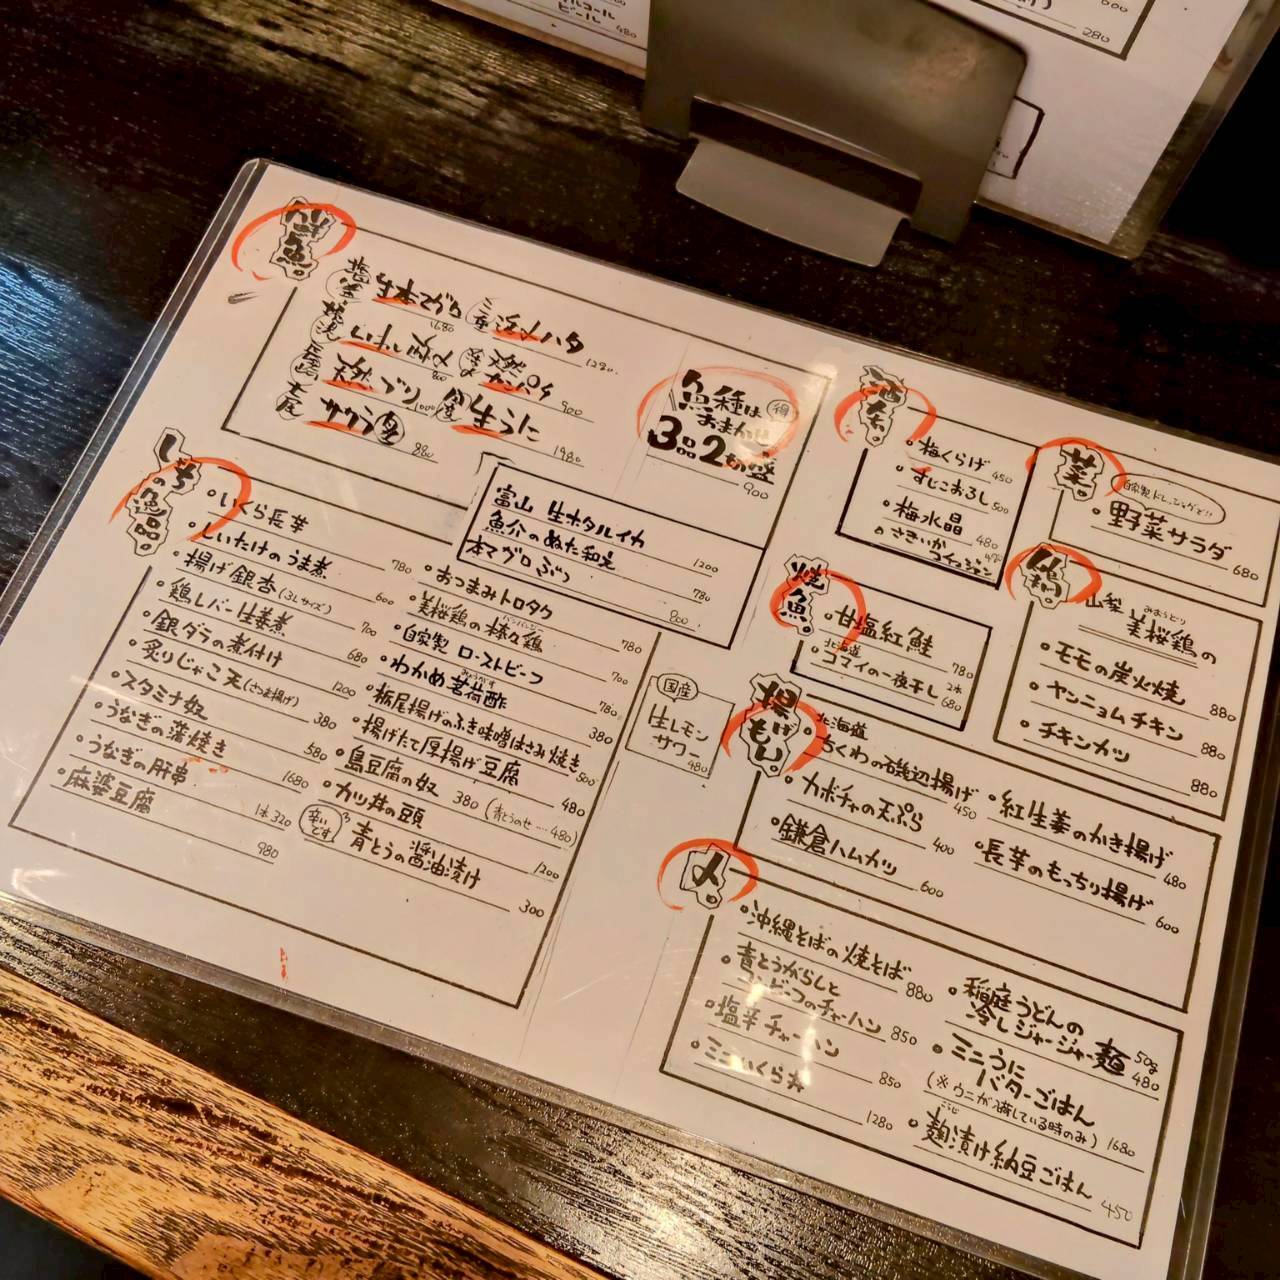 ビール 480
280
鮮魚。
生本マグロ 1680
活〆ハタ 1280.
天然カンパチ 900
天然ブリ 1000
生うに 1980
サクラ
880
魚種は
おまかせ
得
3品2切盛
900
しぞちの逸品。
・いくら長芋 780
・しいたけのうま煮 600
・揚げ銀杏(3Lサイズ) 700
・鶏レバー生姜煮 680
・銀ダラの煮付け 1200
・炙りじゃこ天(さつま揚げ) 380
・スタミナ奴 580
・うなぎの蒲焼き 1680
・うなぎの肝串 1本320
・麻婆豆腐 980
富山 生ホタルイカ 1200
魚介のぬた和え 780
本マグロぶつ 800
・おつまみトロタク 780
・美桜鶏の棒々鶏 700
・自家製 ローストビーフ 780
・わかめ茗荷酢 380
・栃尾揚げのふき味噌はさみ焼き 500
・揚げたて厚揚げ豆腐 480
・島豆腐の奴 380 (青とうのせ…480)
・カツ丼の頭 1200
辛いです
青とうの醤油漬け 300
国産
生レモン
サワー
480
・梅くらげ 450
・すじこおろし 500
・梅水晶 480
・さきいか
菜。
・野菜サラダ 680
焼魚。
・甘塩紅鮭 780
北海道
・コマイの一夜干し 2本 680
鍋。
山梨 美桜鶏の
みおうどり
・モモの炭火焼 880
・ヤンニョムチキン 880
・チキンカツ 880
揚げもん。
北海道
・ちくわの磯辺揚げ 450
・カボチャの天ぷら 400
・鎌倉ハムカツ 600
・紅生姜のかき揚げ 480
・長芋のもっちり揚げ 600
〆。
・沖縄そばの焼そば 880
・青とうがらしと
コンビーフのチャーハン 850
・塩辛チャーハン 850
・ミニいくら丼 1280
・稲庭うどんの
冷しジャージャー麺 50g 480
・ミニうに
バターごはん
(※ウニが入荷している時のみ) 1680
こうじ
・麹漬け納豆ごはん 450